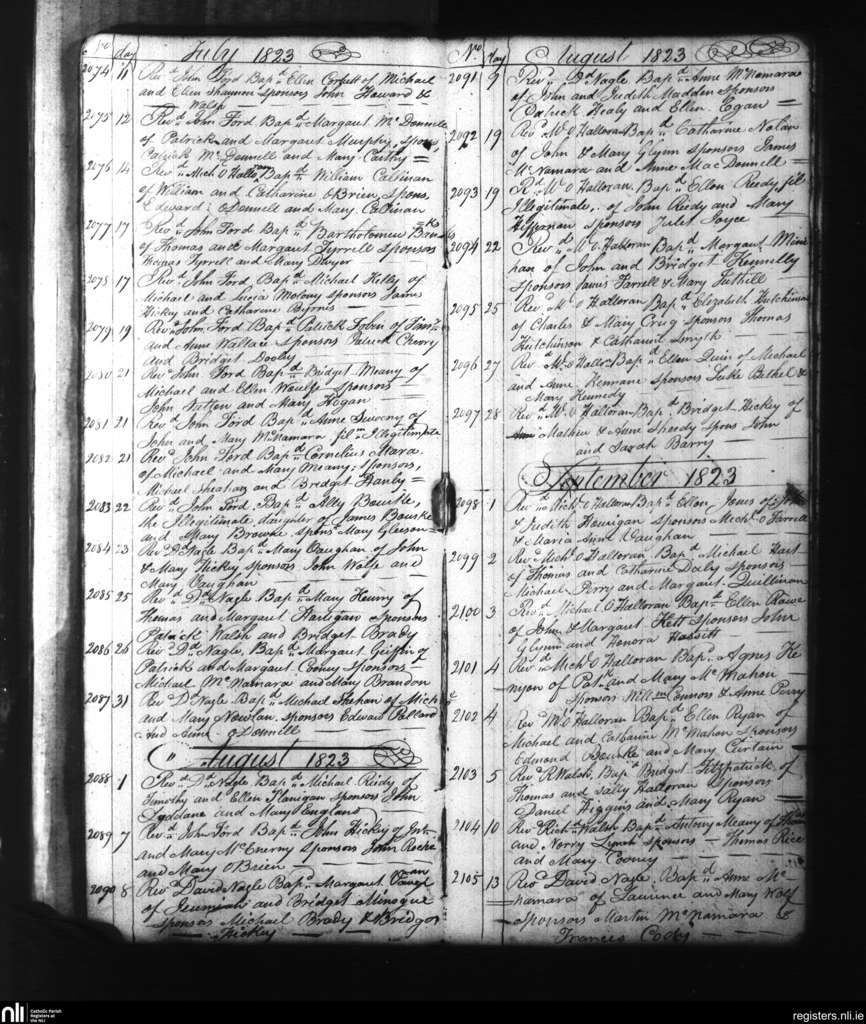 No day July 1823
2074 11 Revd John Ford Bapd Ellen Corbett of Michael
and Ellen Shannon sponsors John Howard &
Walsh
2075 12 Revd John Ford Bapd Margaret McDonnell
of Patrick and Margaret Murphy, Spons,
Patrick McDonnell and Mary Carthy
2076 14 Revd Mich O Hallo Bapd William Callinan
of William and Catharine OBrien, Spons,
Edward ODonnell and Mary Callinan
2077 17 Revd John Ford Bapd Bartholomew
of Thomas and Margaret Tyrrell Sponsors
Thomas Tyrrell and Mary Dwyer
2078 17 Revd John Ford, Bapd Michael Kelly of
Michael and Lucia Molony sponsors James
Hickey and Catharine Byrnes
2079 19 Revd John Ford Bapd Patrick Tobin of
and Anne Wallace Sponsors Patrick Cherry
and Bridget Dooley
2080 21 Revd John Ford Bapd Bridget Meany of
Michael and Ellen Woulfe Sponsors
John and Mary Hogan
2081 21 Revd John Ford Bapd Anne of
John and Mary McNamara fil Illegitimate
2082 21 Revd John Ford Bapd Cornelius Mara
of Michael and Mary Meany, sponsors,
Michael Sheahan and Bridget Hanly
2083 22 Revd John Ford, Bapd Ally Bourke,
the Illegitimate daughter of James Bourke
and Mary Browne Spons Mary Gleeson
2084 23 Revd Dd Nagle Bapd Mary Vaughan of John
& Mary Hickey sponsors John Wolfe and
Mary Vaughan
2085 25 Revd Dd Nagle Bapd Mary Henry of
Thomas and Margaret Hartigan Sponsors
Patrick Walsh and Bridget Brady
2086 26 Revd Dd Nagle, Bapd Margaret Griffin of
Patrick and Margaret Cooney Sponsors
Michael McNamara and Mary Brandon
2087 31 Revd Dd Nagle Bapd Michael Shehan of Mich
and Mary Nowlan, sponsors Edward Pollard
And Anne ODonnell
August 1823
2088 1 Revd Dd Nagle Bapd Michael Reidy of
Timothy and Ellen Flanigan sponsors John
Liddane and Mary England
2089 7 Revd John Ford Bapd John Hickey of Jno
and Mary McEnerny Sponsors John Roche
and Mary OBrien
2090 8 Revd David Nagle Bapd Margaret
of Jeremiah and Bridget Minogue
Sponsors Michael Brady & Bridget
Hickey
No day August 1823
2091 9 Revd Dd Nagle Bapd Anne McNamara
of John and Judith Madden Sponsors
Patrick Healy and Ellen Egan
2092 19 Revd M O Halloran Bapd Catharine Nolan
of John & Mary Glynn sponsors James
McNamara and Anne MacDonnell
2093 19 Rd M O Halloran, Bapd Ellen Reedy fil
Illegitimate, of John Reidy and Mary
Heffernan Sponsors Juliet Joyce
2094 22 Revd M O Halloran Bapd Margaret Mini
han of John and Bridget Kennelly
Sponsors James Farrell & Mary Tuthill
2095 25 Revd M O Halloran Bapd Elizabeth Hutchinson
of Charles & Mary Crug sponsors Thomas
Hutchinson & Catharine Smyth
2096 27 Revd M O Hallo Bapd Ellen Quin of Michael
and Anne Rennane Sponsors Luke Bethel &
Mary Kennedy
2097 28 Revd M O Halloran Bapd Bridget Hickey of
Mathew & Anne Sheedy Spons John
and Sarah Barry
September 1823
2098 1 Revd Michl O Halloran Bapd Ellen Jones of
& Judith Hourigan Sponsors Michl O Farrell
& Maria Anne Vaughan
2099 2 Revd Michl O Halloran Bapd Michael Hart
of Thomas and Catharine Daly Sponsors
Michael Perry and Margaret Quillinan
2100 3 Revd Michael O Halloran Bapd Ellen Rowe
of John & Margaret Hett Sponsors John
Glynn and Honora Hassett
2101 4 Revd Michl O Halloran Bapd Agnes Ke
nyon of Patk and Mary McMahon
Sponsors Willm Connors & Anne Perry
2102 4 Revd M O Halloran Bapd Ellen Ryan of
Michael and Catharine McMahon Sponsors
Edmond Bourke and Mary Curtain
2103 5 Revd R Walsh, Bapd Bridget Fitzpatrick of
Thomas and Sally Halloran Sponsors
Daniel Higgins and Mary Ryan
2104 10 Revd Richd Walsh Bapd Antony Meany of
and Norry Lynch sponsors Thomas Rice
and Mary Cooney
2105 13 Revd David Nagle, Bapd Anne Mc
namara of Laurence and Mary Wolf
Sponsors Martin McNamara &
Frances Cody
nli Catholic Parish
Registers at
the NLI
registers.nli.ie